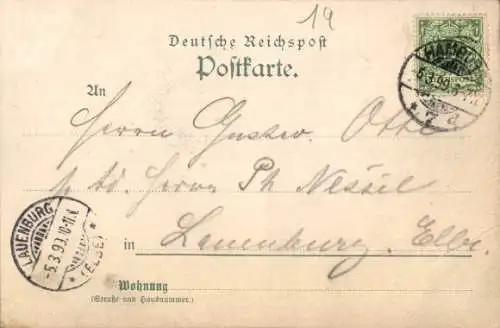 19
Deutsche Reichspost
Postkarte.
HAMBURG
5.3.99.
* 7 a
An
Herrn Gustav Otte
p. Ad. Herrn Ph Nessel
LAUENBURG
-5.3.99.10-11.V.
* (ELBE) *
in Lauenburg. Elbe.
Wohnung
(Straße und Hausnummer.)